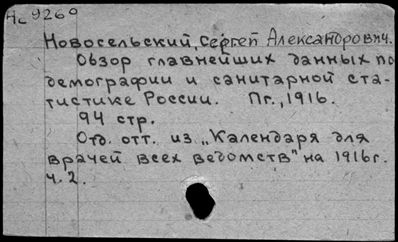 Нс 9260
Новосельский, Сергей Александрович.
Обзор главнейших данных по
демографии и санитарной ста-
тистике России. Пг., 1916.
94 стр.
Отд. отт. из „Календаря для
врачей всех ведомств" на 1916 г.
ч. 2.